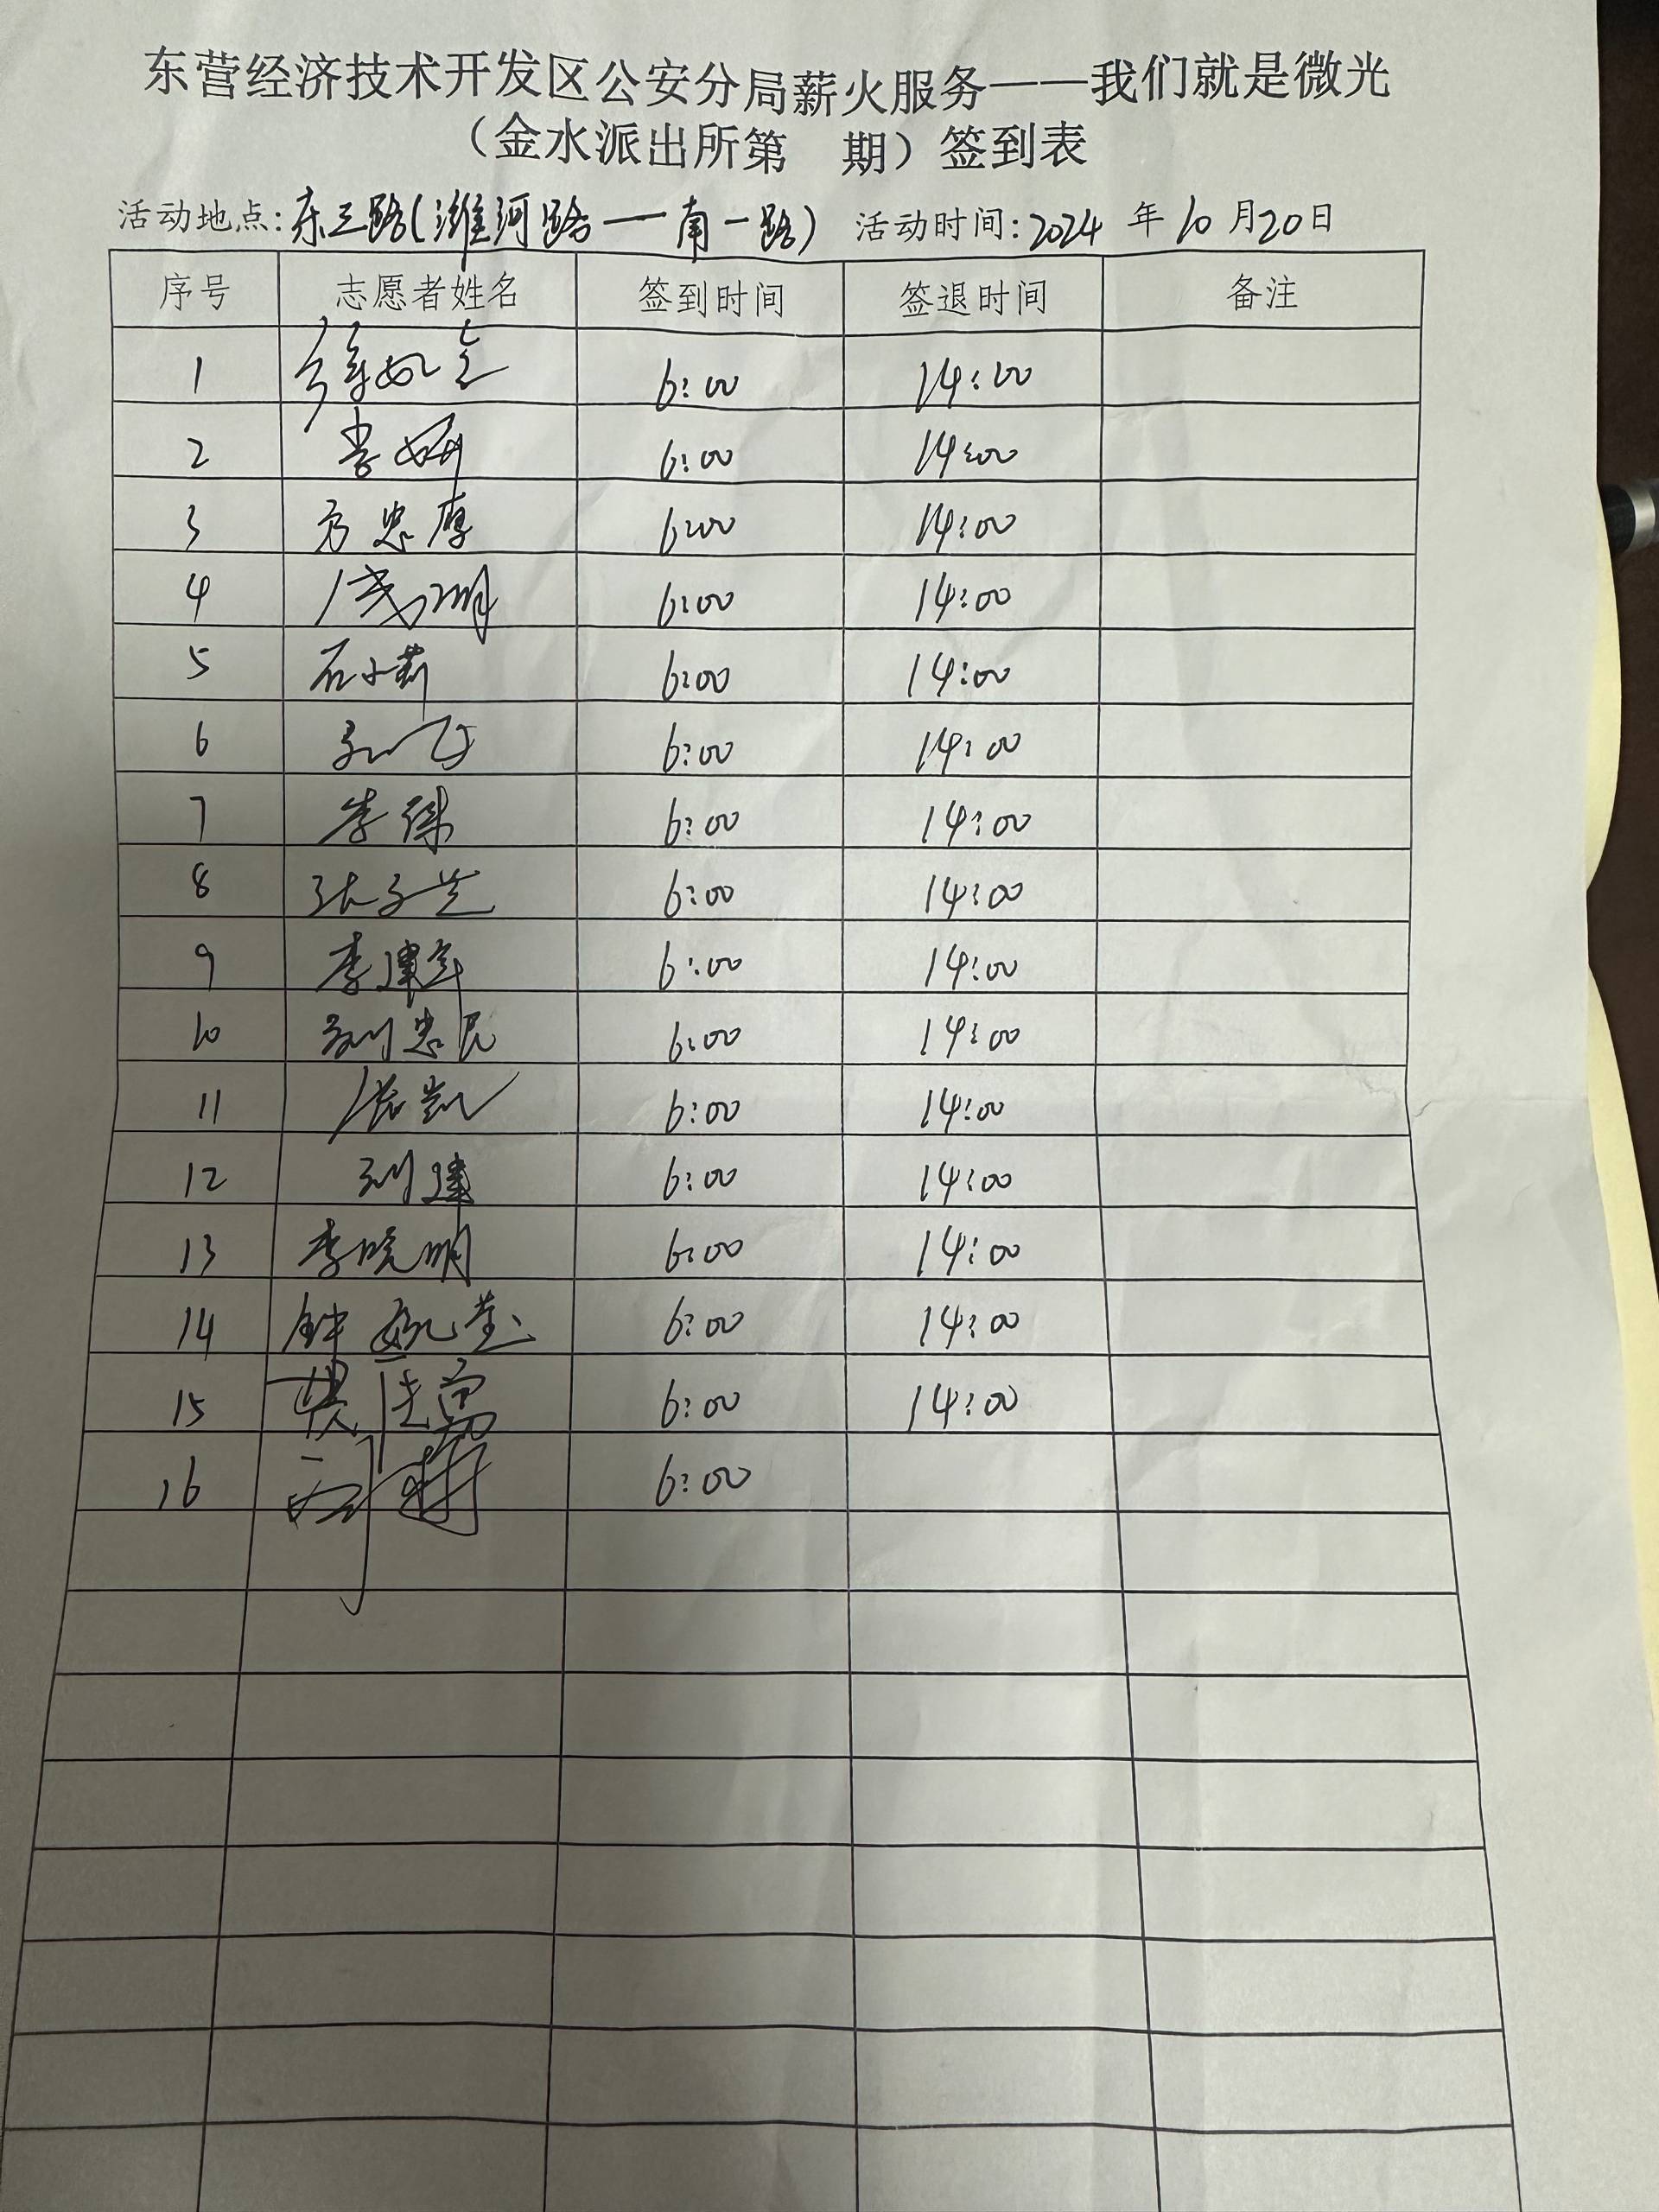 东营经济技术开发区公安分局薪火服务——我们就是微光
（金水派出所第 期）签到表
活动地点：东三路(潍河路一南一路) 活动时间：2024 年 10 月 20 日
序号 志愿者姓名 签到时间 签退时间 备注
1 6:00 14:00
2 李妍 6:00 14:00
3 方忠厚 6:00 14:00
4 6:00 14:00
5 石小莉 6:00 14:00
6 6:00 14:00
7 李 6:00 14:00
8 6:00 14:00
9 李建军 6:00 14:00
10 刘忠民 6:00 14:00
11 张凯 6:00 14:00
12 刘建 6:00 14:00
13 李晓明 6:00 14:00
14 钟 6:00 14:00
15 6:00 14:00
16 6:00